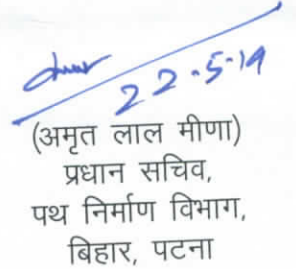 22.5.19
(अमृत लाल मीणा)
प्रधान सचिव,
पथ निर्माण विभाग,
बिहार, पटना